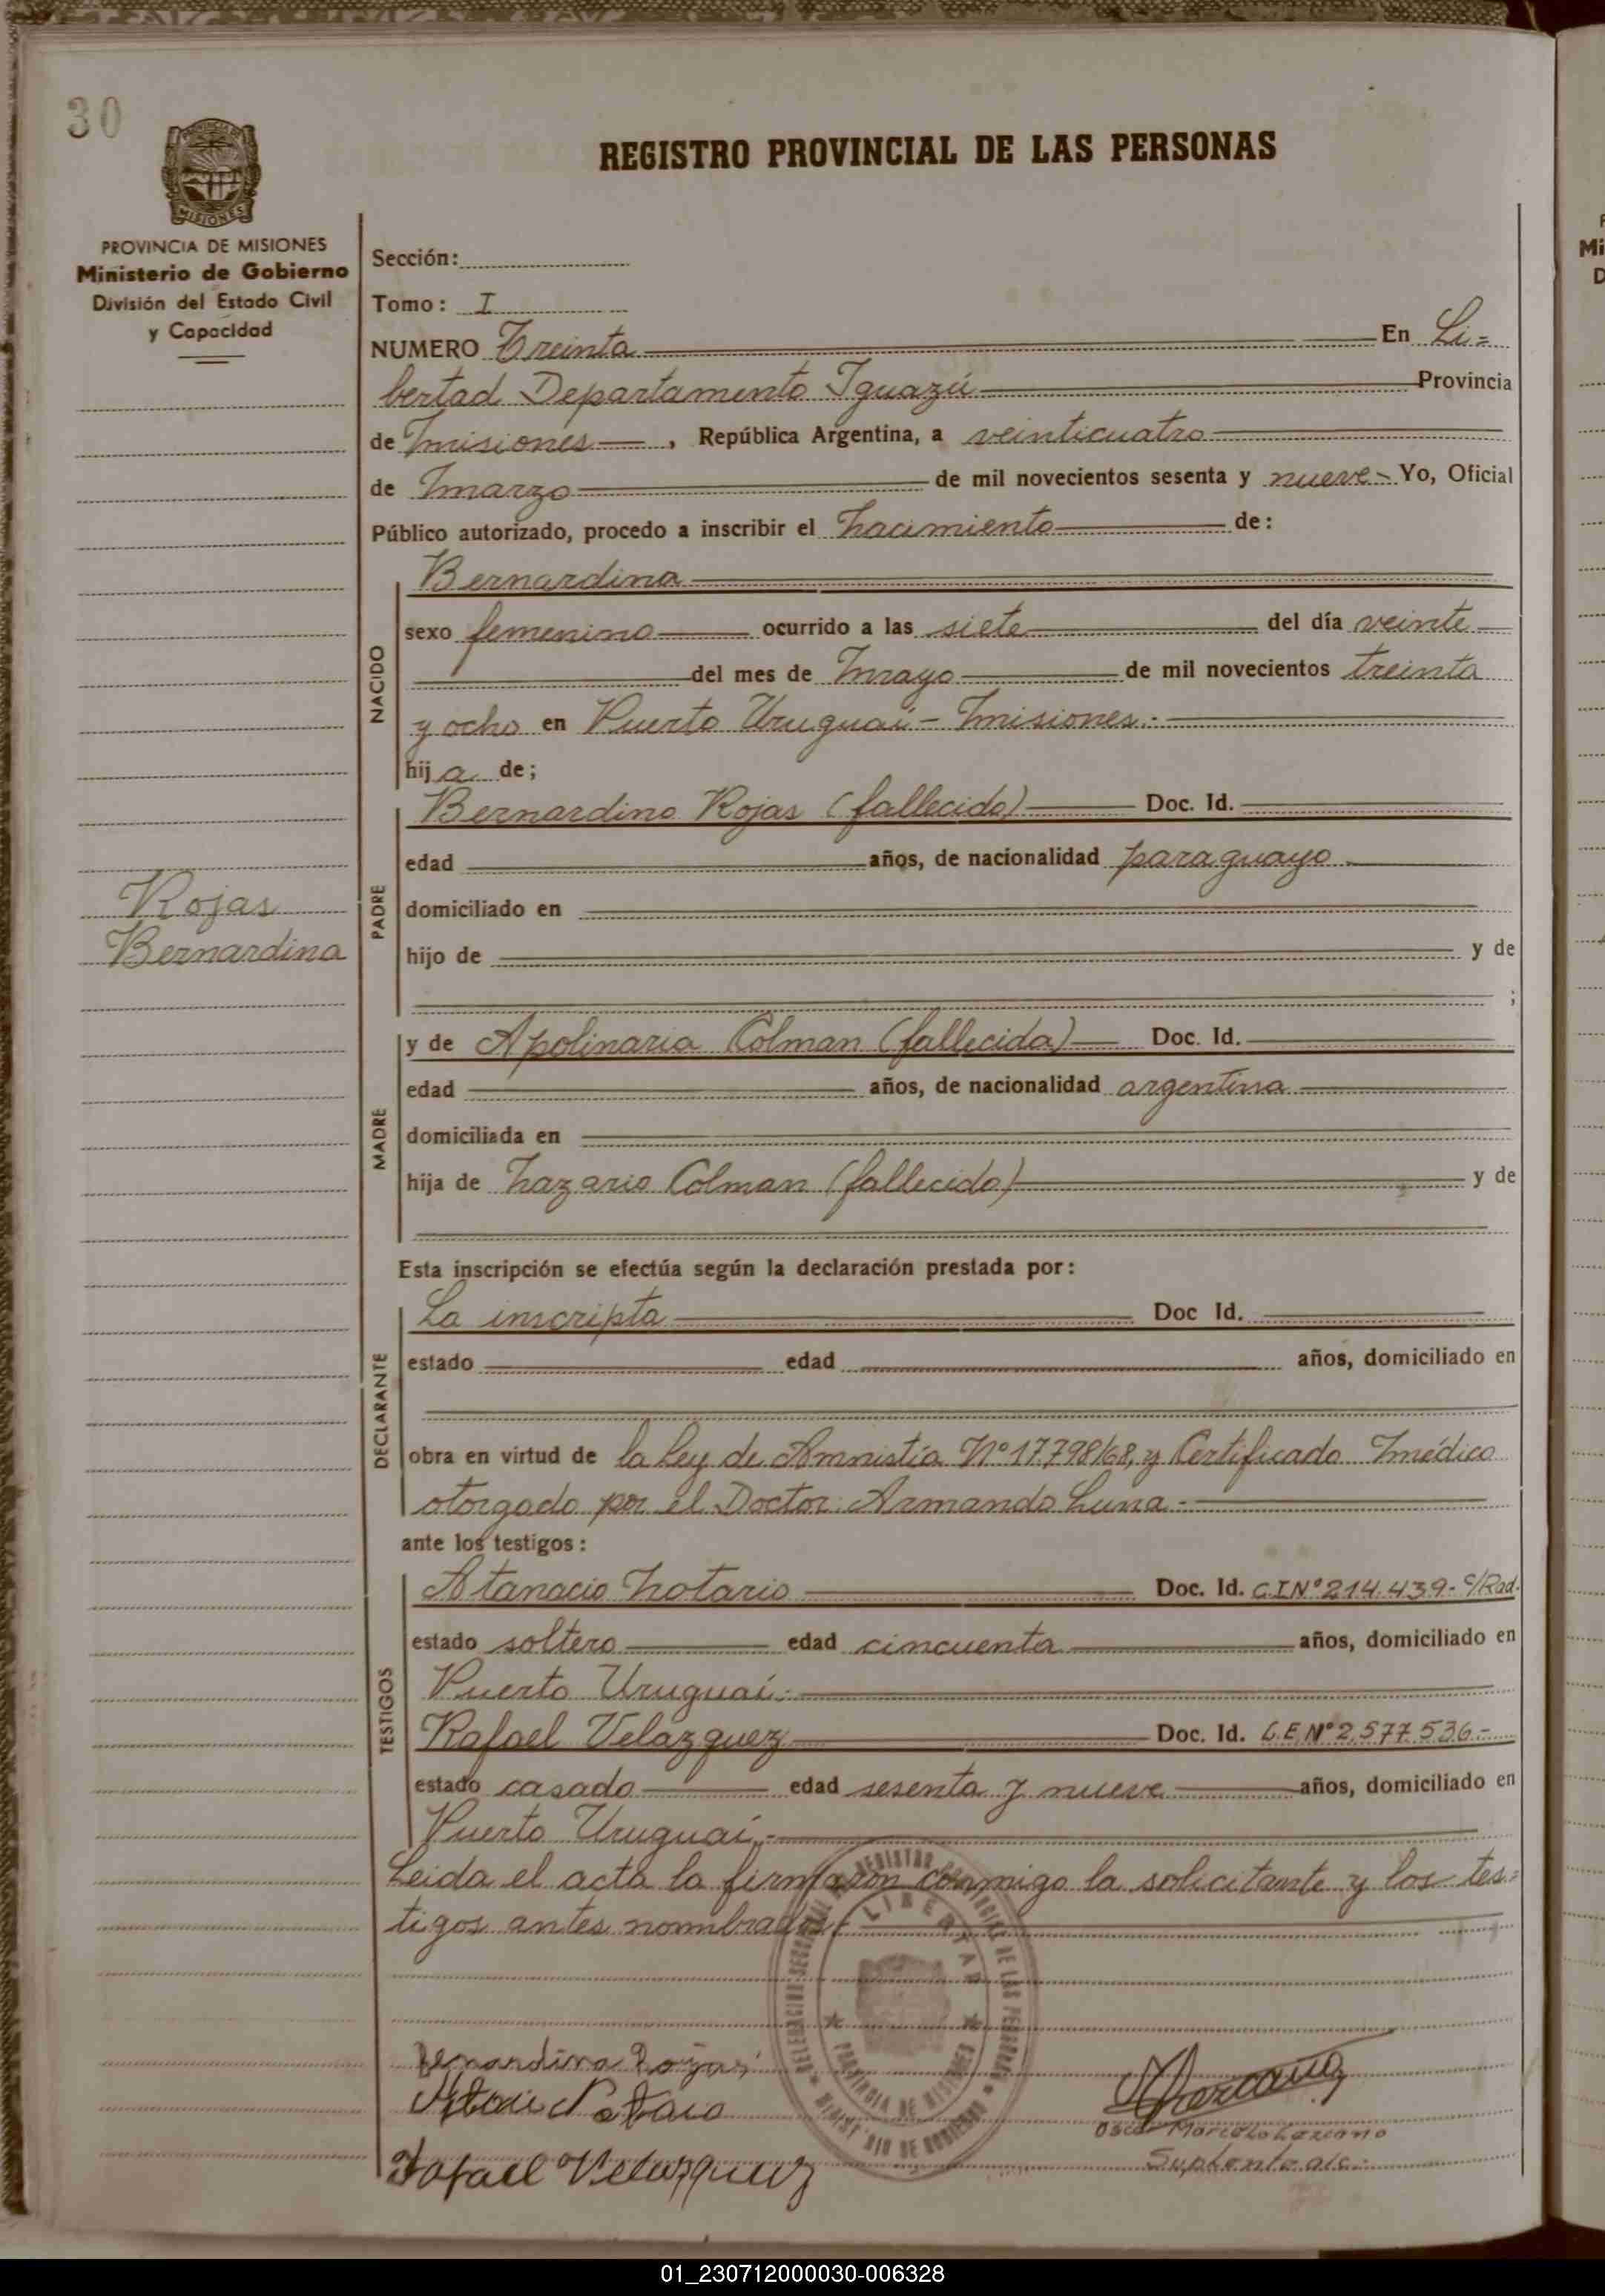 30
PROVINCIA DE MISIONES
Ministerio de Gobierno
División del Estado Civil
y Capacidad
REGISTRO PROVINCIAL DE LAS PERSONAS
Sección:
Tomo: I
NUMERO Treinta En Li=
bertad Departamento Iguazú Provincia
de Misiones, República Argentina, a veinticuatro
de Marzo de mil novecientos sesenta y nueve Yo, Oficial
Público autorizado, procedo a inscribir el Nacimiento de:
NACIDO
Bernardina
sexo femenino ocurrido a las siete del día veinte
del mes de Mayo de mil novecientos treinta
y ocho en Puerto Uruguaí - Misiones.-
hija de;
PADRE
Bernardino Rojas (fallecido) Doc. Id.
edad años, de nacionalidad paraguayo
Rojas
Bernardina
domiciliado en
hijo de y de
;
MADRE
y de Apolinaria Colman (fallecida) Doc. Id.
edad años, de nacionalidad argentina
domiciliada en
hija de Nazario Colman (fallecido) y de
Esta inscripción se efectúa según la declaración prestada por:
DECLARANTE
La inscripta Doc Id.
estado edad años, domiciliado en
obra en virtud de la Ley de Amnistía Nº 17.798/68, y Certificado Médico
otorgado por el Doctor: Armando Luna.-
ante los testigos:
TESTIGOS
Atanacio Notario Doc. Id. C.I.Nº 214.439- c/Rad.
estado soltero edad cincuenta años, domiciliado en
Puerto Uruguaí.-
Rafael Velazquez Doc. Id. L.E.Nº 2.577.536.-
estado casado edad sesenta y nueve años, domiciliado en
Puerto Uruguaí.-
Leida el acta la firmaron conmigo la solicitante y los tes=
tigos antes nombrados.-
LIBERTAD
PROVINCIA DE MISIONES
Bernardina Rojas
Notario
Rafael Velazquez
Oscar Marcelo Lezcano
Suplente a/c.
01_230712000030-006328